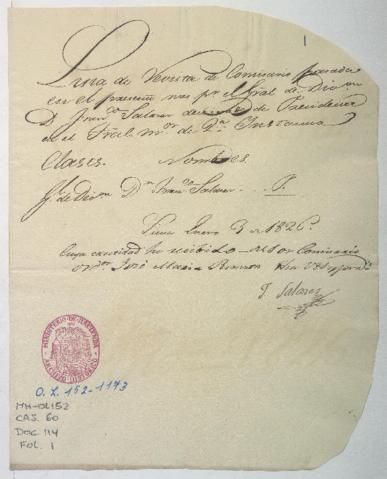 1
Lista de Revista de Comisario pasada
en el presente mes por el Gral de Divon
D. Franco Salazar de Presidencia
en el Trial Mor de Ra Instancia
Clases. Nombres.
Gl. de Divon Dn Franco Salazar P.
Lima Enero 3 de 1826.
Cuya cantidad he recibido del Sor Comisario
Dn José Maria
F. Salazar
MINISTERIO DE HACIENDA
ARCHIVO HISTORICO
O.L. 152-1173
MH-OL152
CAJ. 60
DOC. 114
FOL. 1